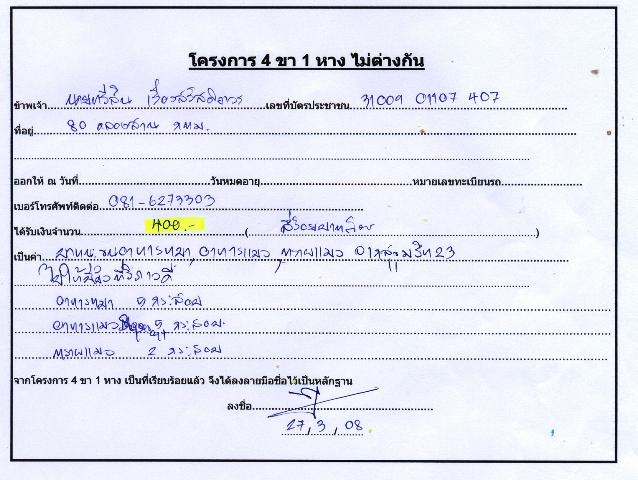 โครงการ 4 ขา 1 หาง ไม่ต่างกัน
ข้าพเจ้า นายทวีสิน เลขที่บัตรประชาชน 31009 01107 407
ที่อยู่ 80 คลองสาน กทม.
ออกให้ ณ วันที่ วันหมดอายุ หมายเลขทะเบียนรถ
เบอร์โทรศัพท์ติดต่อ 081-6273303
ได้รับเงินจำนวน 400.- ( สี่ร้อยบาทถ้วน )
เป็นค่า ขนอาหารหมา, อาหารแมว, ทรายแมว 23
ไปให้
อาหารหมา 5 กระสอบ
อาหารแมว 5 กระสอบ
ทรายแมว 2 กระสอบ
จากโครงการ 4 ขา 1 หาง เป็นที่เรียบร้อยแล้ว จึงได้ลงลายมือชื่อไว้เป็นหลักฐาน
ลงชื่อ
27, 3, 08